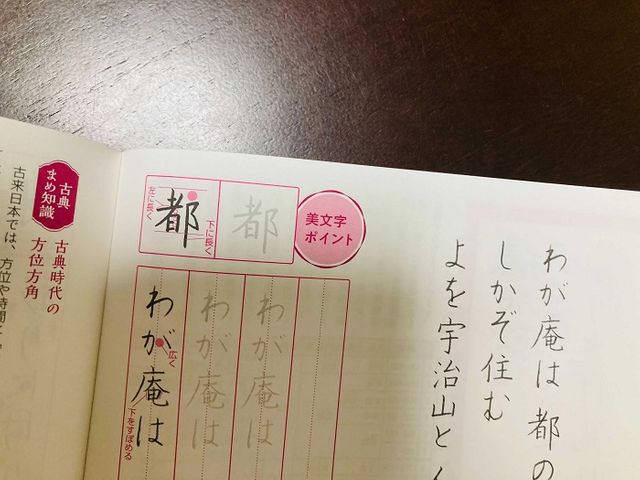 わが庵は 都の
しかぞ住む
よを宇治山と
美文字
ポイント
都
都
左に長く
下に長く
わが庵は
わが庵は
わが庵は
広く
下をすぼめる
古典
まめ知識
古典時代の
方位方角
古来日本では、方位や時間を